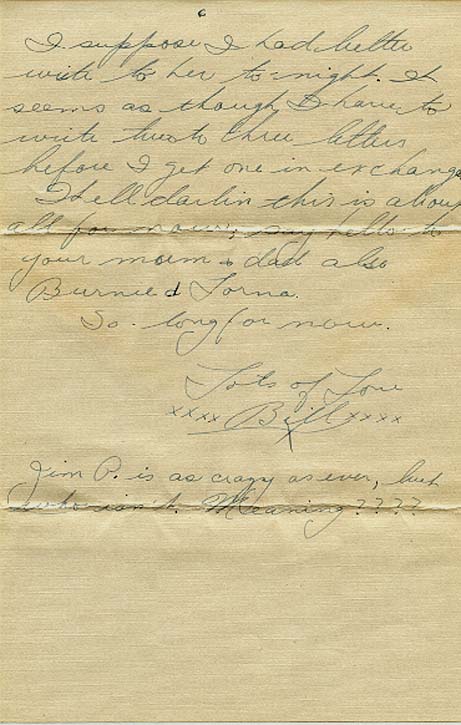 6
I suppose I had better
write to her to-night. It
seems as though I have to
write two to three letters
before I get one in exchange
Well darlin this is about
all for now, say hello to
your mum & dad also
Burnie & Lorna.
So long for now.
Lots of Love
xxxx Bill xxxx
Jim P. is as crazy as ever, but
who isn't. Meaning????